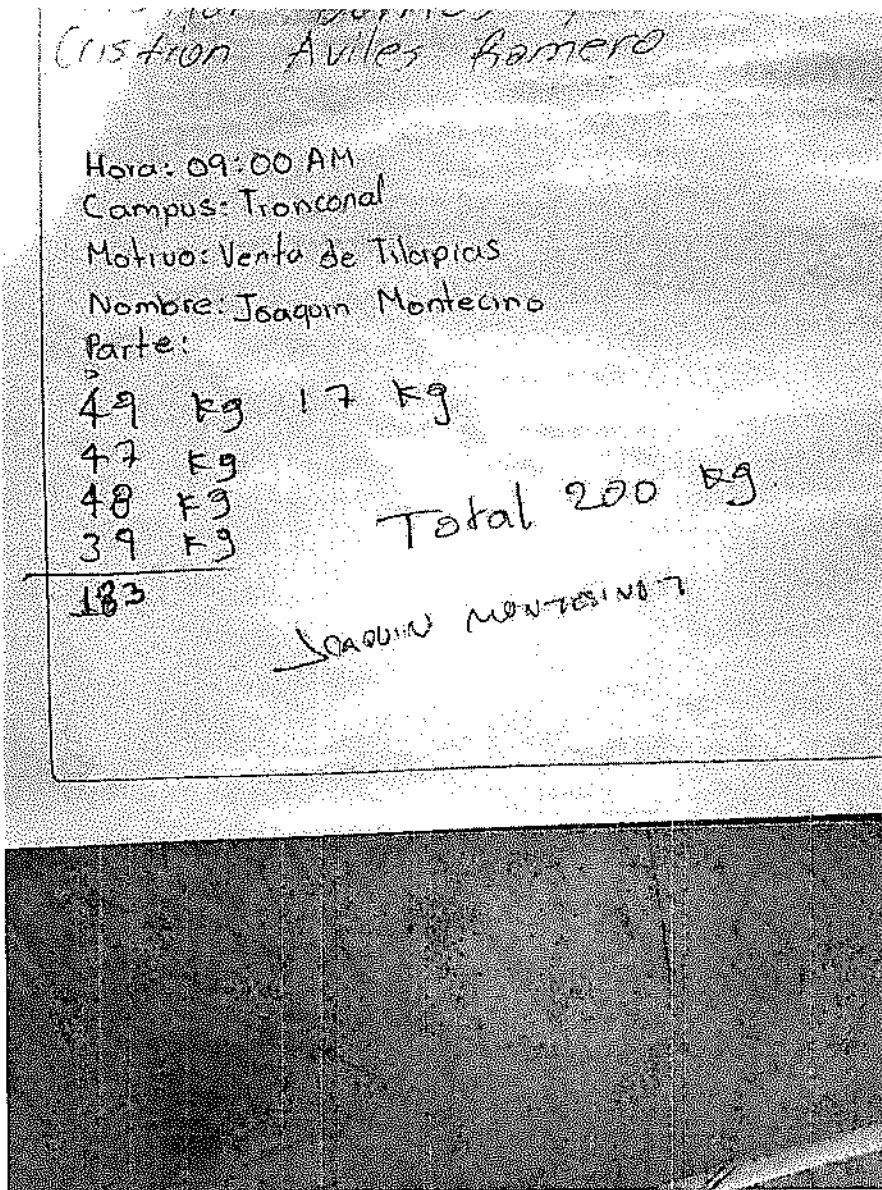 Cristian Aviles Romero
Hora: 09:00 AM
Campus: Tronconal
Motivo: Venta de Tilapias
Nombre: Joaquin Montecino
Parte:
49 kg 17 kg
47 kg
48 kg
39 kg
183
Total 200 kg.
JOAQUIN